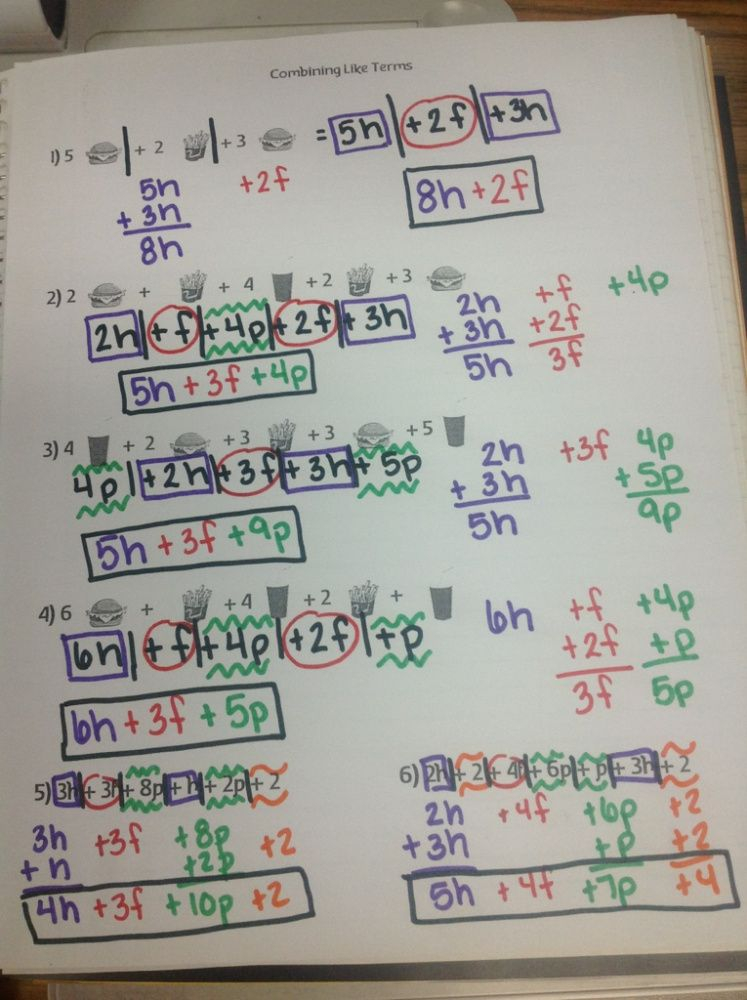 Combining Like Terms
1) 5 + 2 + 3 = 5h +2f +3h
5h +2f
+ 3h
8h
8h + 2f
2) 2 + + 4 + 2 + 3
2h +f +4p +2f +3h
2h +f +4p
+ 3h +2f
5h 3f
5h + 3f +4p
3) 4 + 2 + 3 + 3 + 5
4p +2h +3f +3h + 5p
2h +3f 4p
+ 3h + 5p
5h 9p
5h + 3f + 9p
4) 6 + + 4 + 2 +
6h +f +4p +2f +p
6h +f +4p
+2f +p
3f 5p
6h + 3f + 5p
5) 3h + 3f + 8p + h + 2p + 2
3h +3f +8p +2
+ h +2p
4h +3f +10p +2
6) 2h + 2 + 4f + 6p + p + 3h + 2
2h +4f +6p +2
+ 3h +p +2
5h + 4f +7p +4